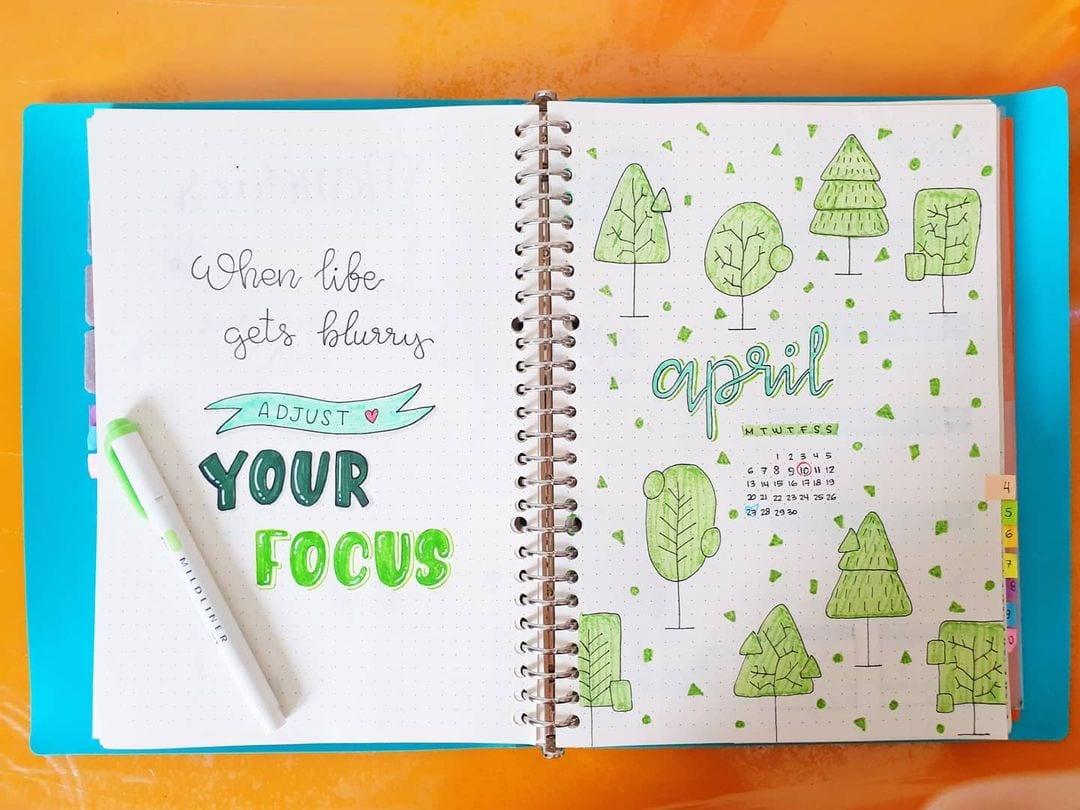 When life
gets blurry
ADJUST
YOUR
FOCUS
MILDLINER
april
M T W T F S S
1 2 3 4 5
6 7 8 9 10 11 12
13 14 15 16 17 18 19
20 21 22 23 24 25 26
27 28 29 30
4
5
6
7
8
9
0